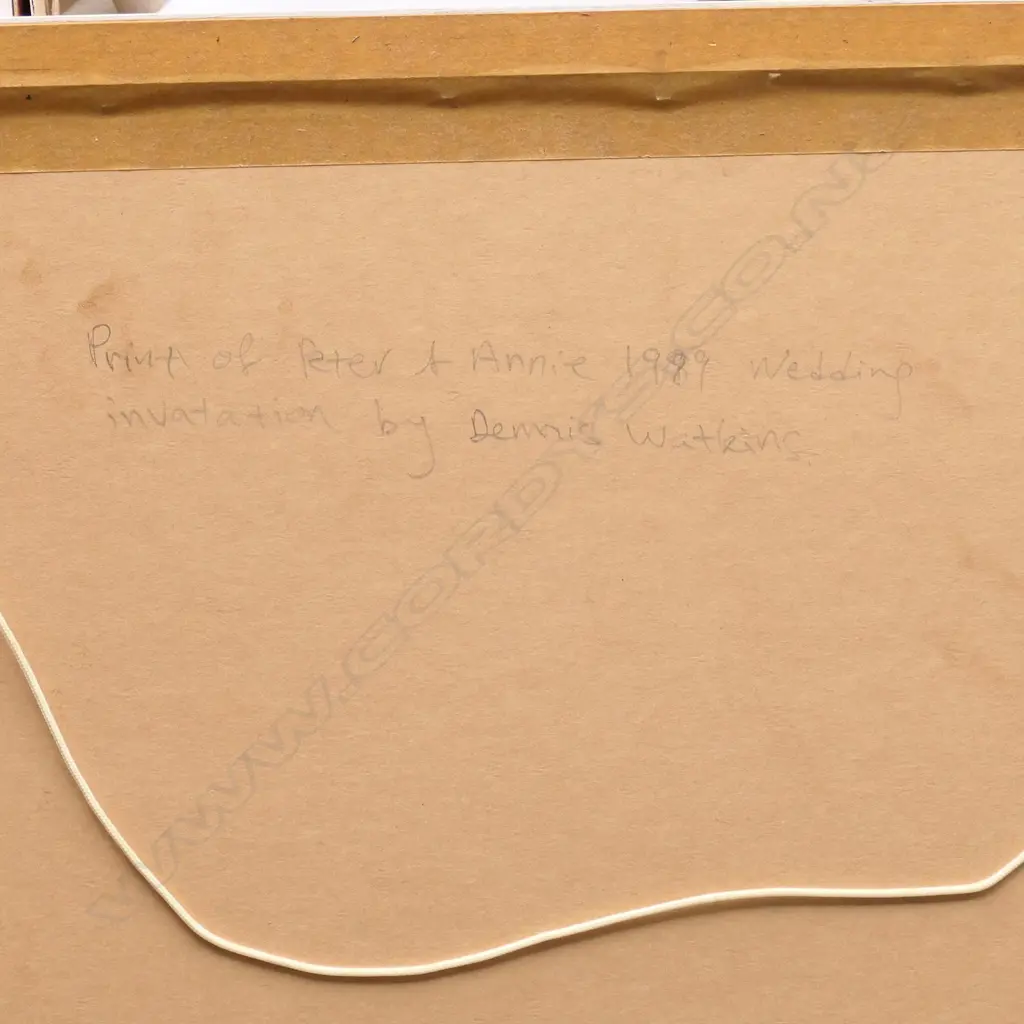 Print of Peter & Annie 1989 Wedding
invatation by Dennis Watkins
WWW.CORDYS.CO.NZ